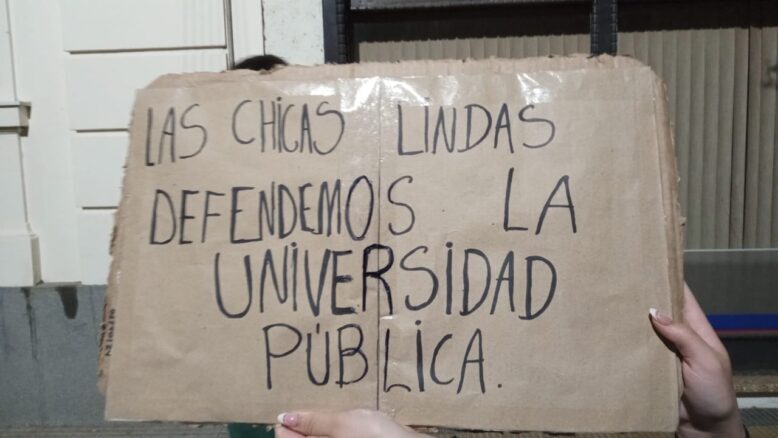 LAS CHICAS LINDAS
DEFENDEMOS LA
UNIVERSIDAD
PÚBLICA.